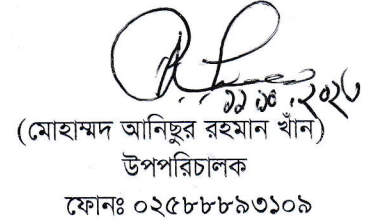 ১১.১০.২০২৩
(মোহাম্মদ আনিছুর রহমান খাঁন)
উপপরিচালক
ফোনঃ ০২৫৮৮৮৯৩১০৯